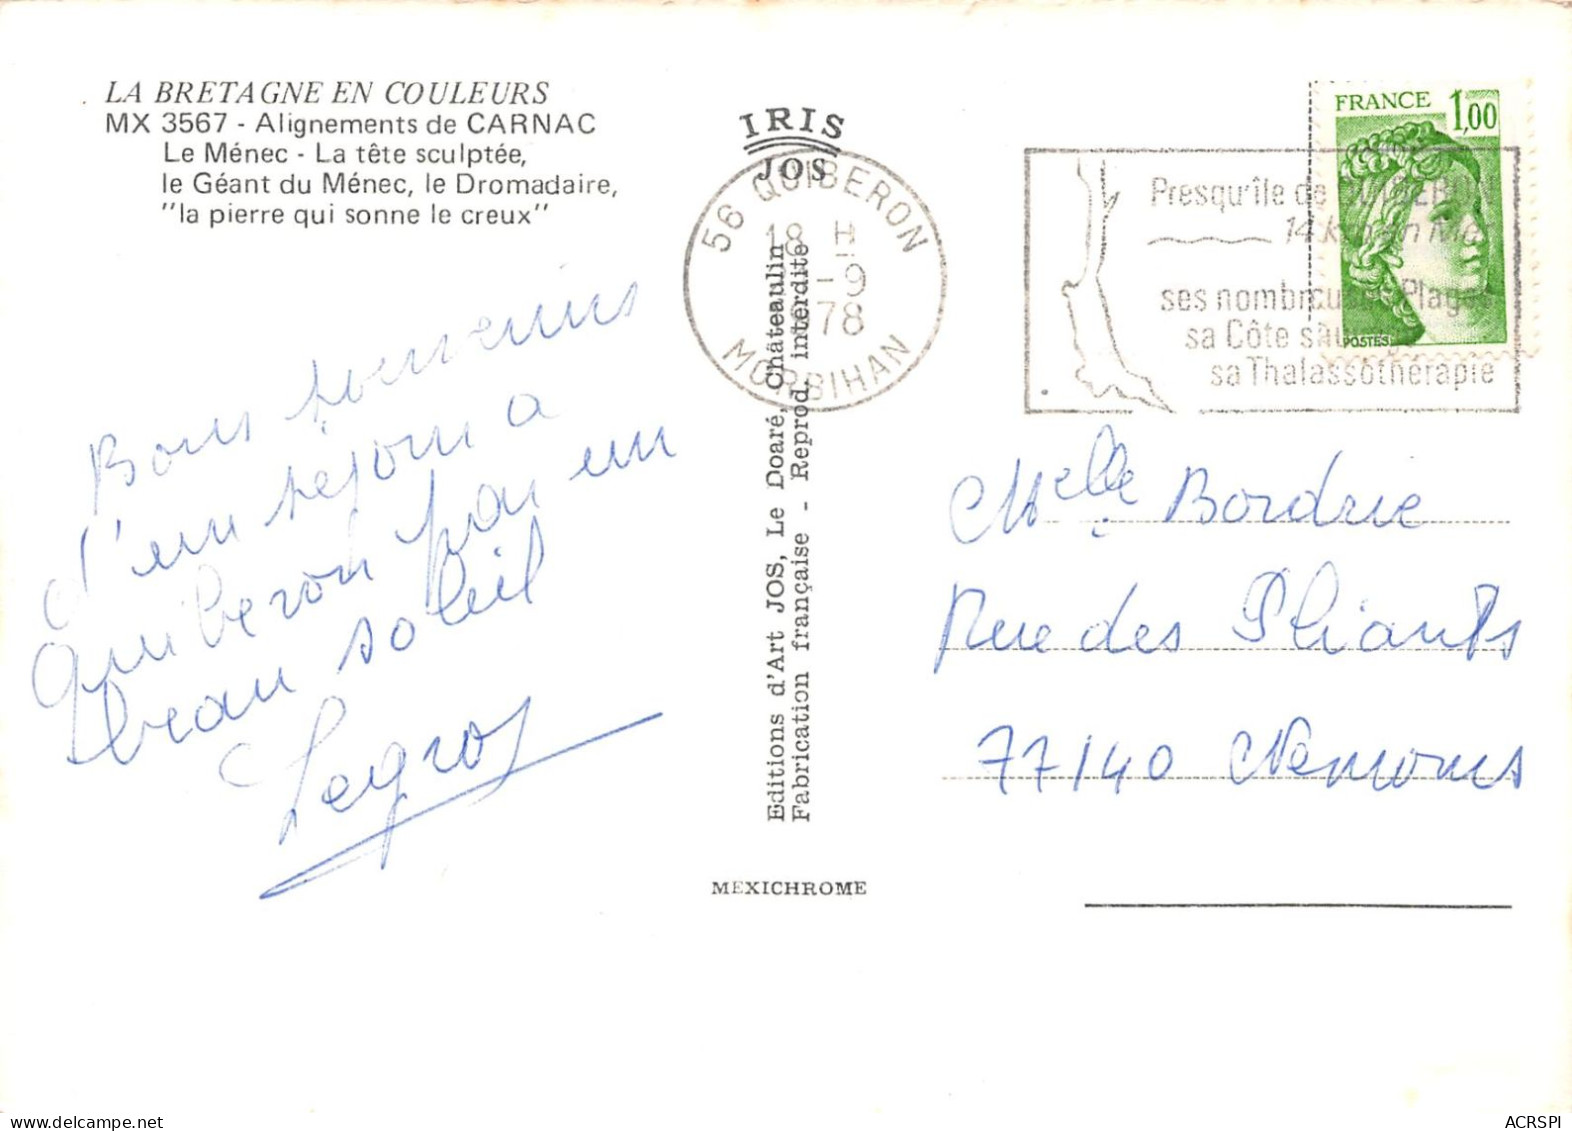 LA BRETAGNE EN COULEURS
MX 3567 - Alignements de CARNAC
Le Ménec - La tête sculptée,
le Géant du Ménec, le Dromadaire,
"la pierre qui sonne le creux"
Bons souvenirs
d'un séjour a
Quiberon par un
beau soleil
Legros
IRIS
JOS
56 QUIBERON
18 H
-9
1978
MORBIHAN
Editions d'Art JOS, Le Doaré, Châteaulin
Fabrication française - Reprod. interdite
MEXICHROME
FRANCE 1,00
POSTES
Presqu'île de QUIBERON
14 km en Mer
ses nombreuses Plages
sa Côte sauvage
sa Thalassothérapie
Melle Bordrie
Rue des Pliants
77140 Nemours
delcampe.net
ACRSPI